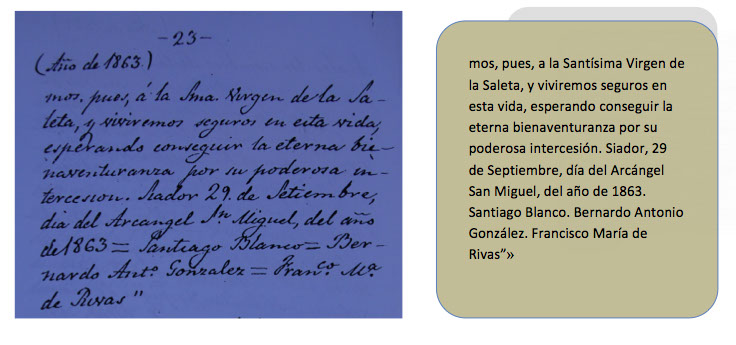 -23-
(Año de 1863.)
mos, pues, á la Sma. Virgen de la Sa-
leta, y viviremos seguros en esta vida,
esperando conseguir la eterna bie-
naventuranza por su poderosa in-
tercesion. Siador 29. de Setiembre,
dia del Arcangel Sn. Miguel, del año
de 1863 = Santiago Blanco = Ber-
nardo Anto. Gonzalez = Franco. Ma.
de Rivas"
mos, pues, a la Santísima Virgen de
la Saleta, y viviremos seguros en
esta vida, esperando conseguir la
eterna bienaventuranza por su
poderosa intercesión. Siador, 29
de Septiembre, día del Arcángel
San Miguel, del año de 1863.
Santiago Blanco. Bernardo Antonio
González. Francisco María de
Rivas”»